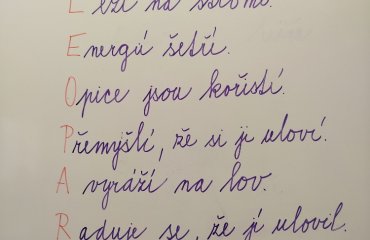 Leží na stromě.
Energii šetří.
Opice jsou kořistí.
Přemýšlí, že si ji uloví.
A vyráží na lov.
Raduje se, že jí ulovil.